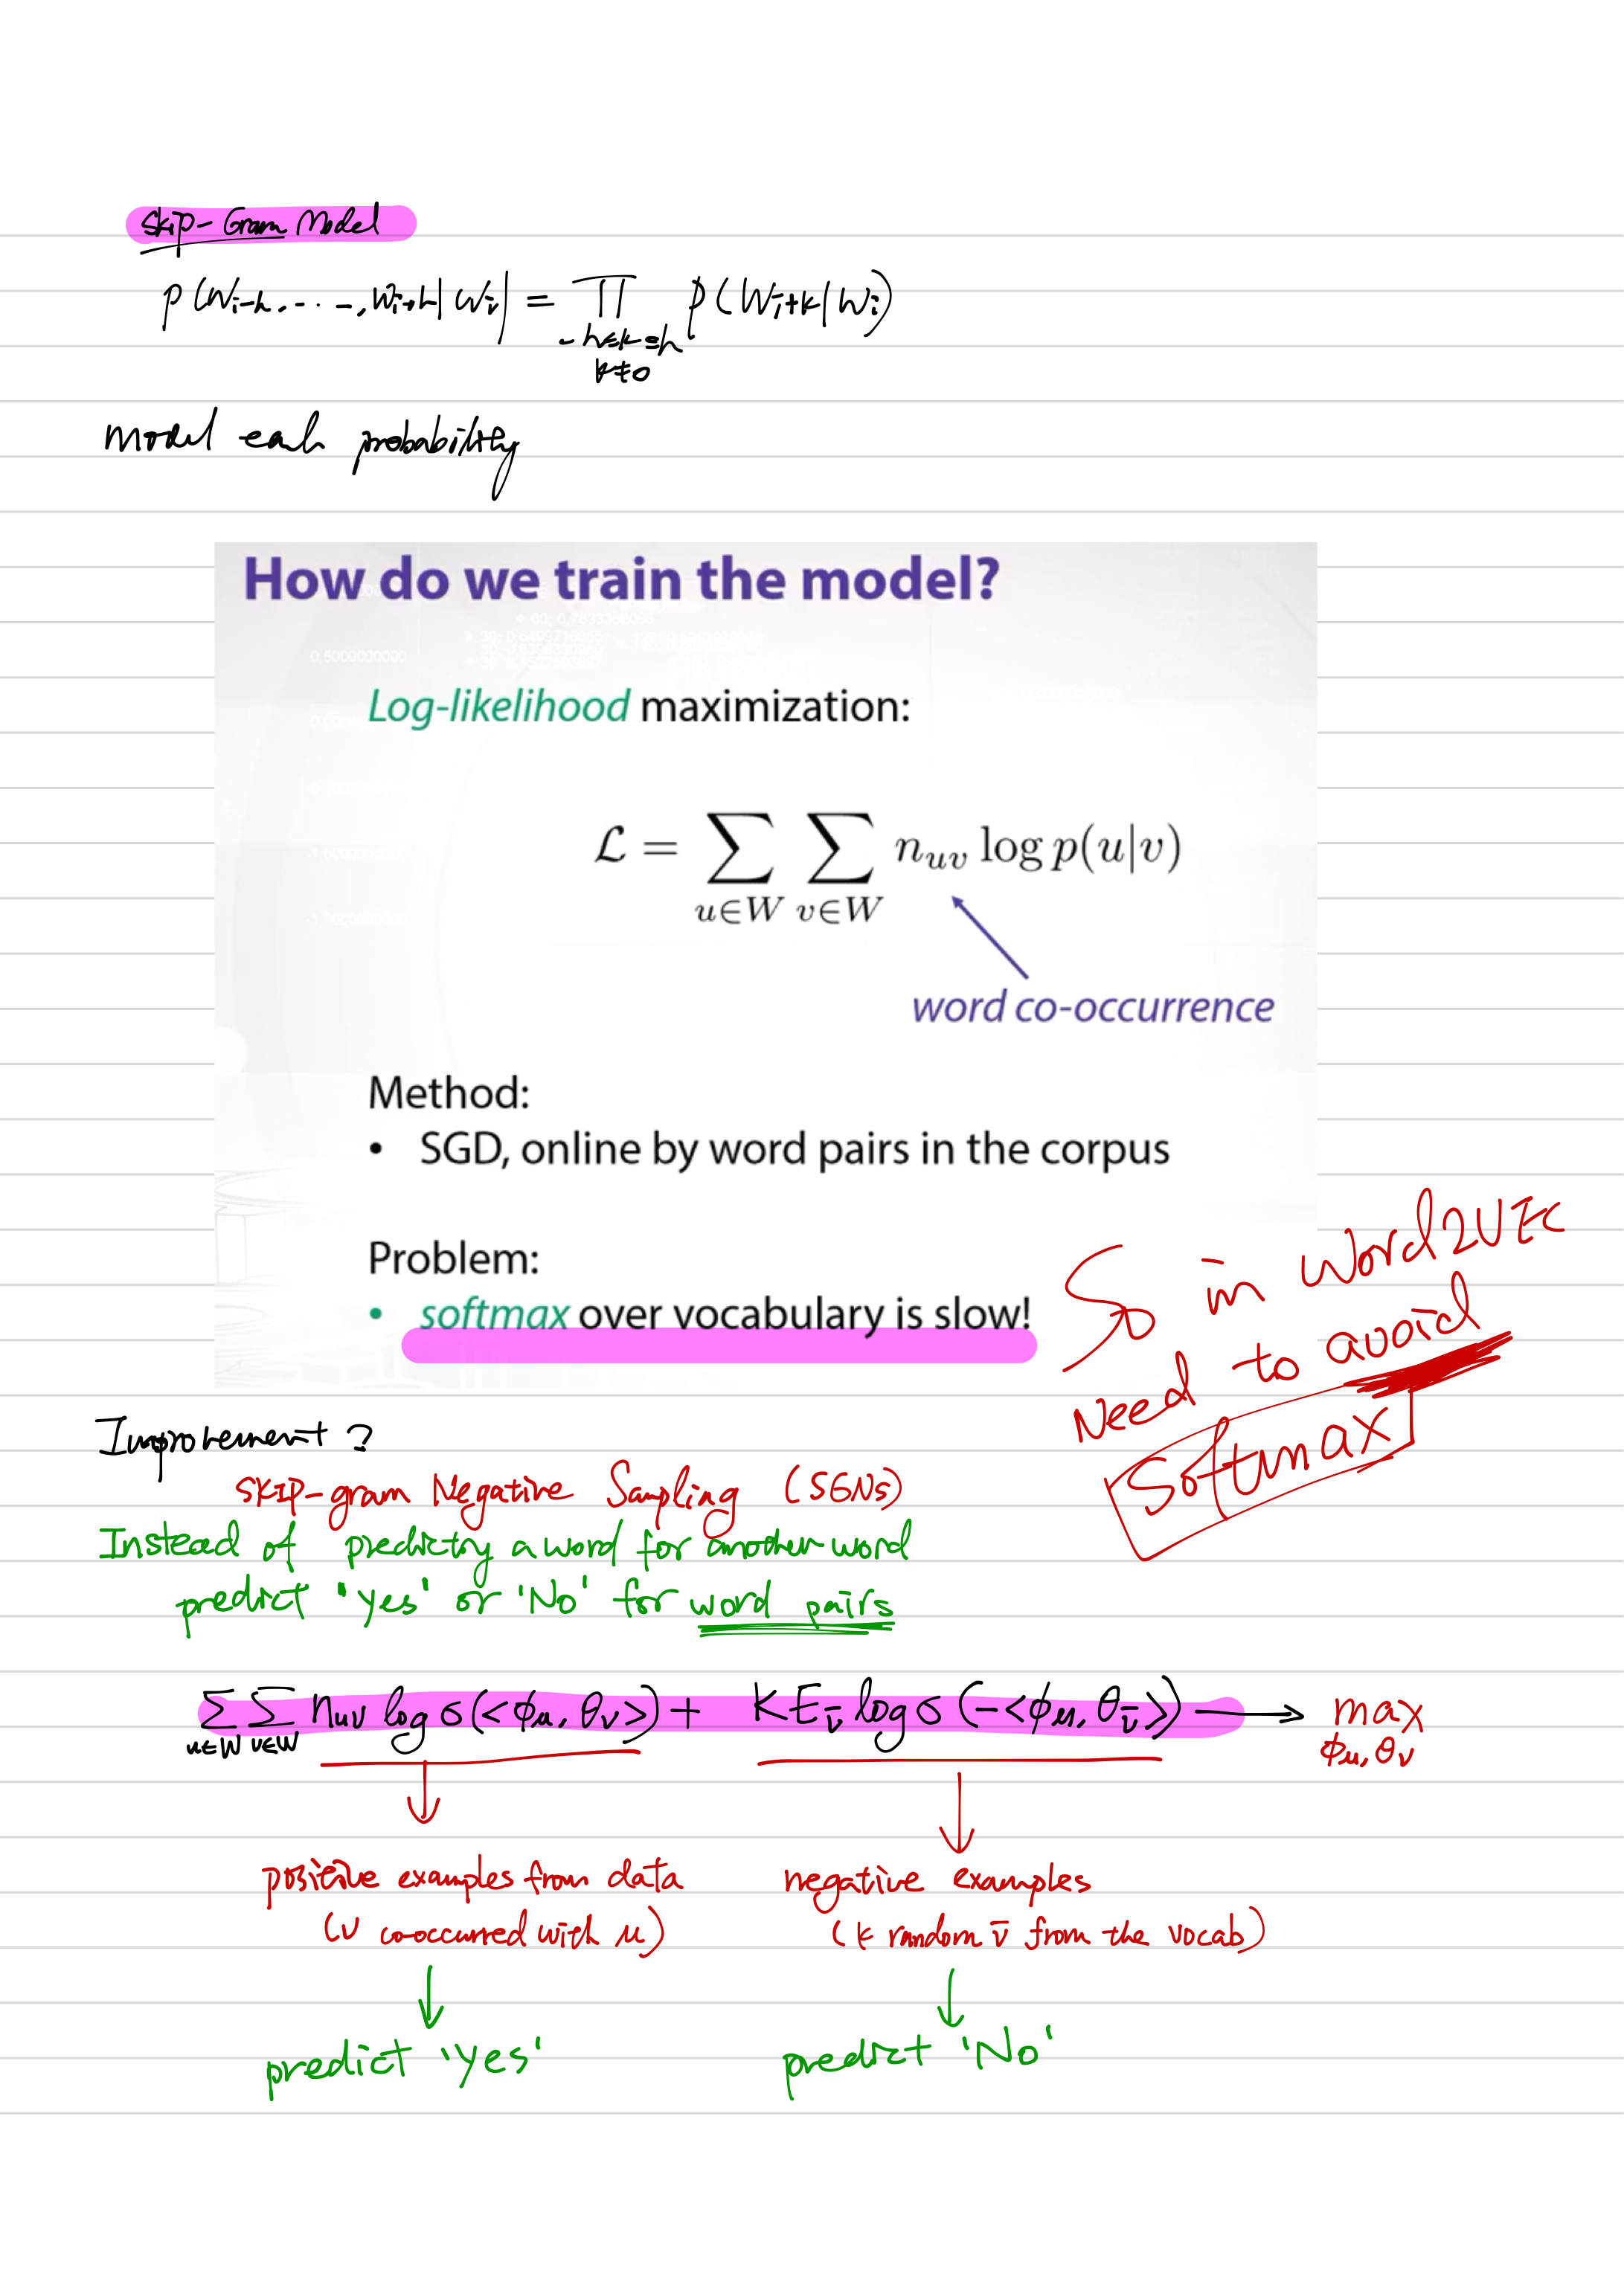 Skip-Gram Model
p(w_{i-h}, ..., w_{i+h} | w_i) = ∏_{-h≤k≤h, k≠0} p(w_{i+k} | w_i)
model each probability
How do we train the model?
Log-likelihood maximization:
ℒ = ∑_{u∈W} ∑_{v∈W} n_{uv} log p(u|v)
word co-occurrence
Method:
• SGD, online by word pairs in the corpus
Problem:
• softmax over vocabulary is slow!
So in Word2VEC
Need to avoid
Softmax
Improvement?
SKIP-gram Negative Sampling (SGNs)
Instead of predicting a word for another word
predict 'yes' or 'No' for word pairs
∑_{u∈W} ∑_{v∈W} n_{uv} log σ(<ϕ_u, θ_v>) + K E_{v̄} log σ(-<ϕ_u, θ_{v̄}>) → max_{ϕ_u, θ_v}
positive examples from data
(v co-occurred with u)
negative examples
(k random v̄ from the vocab)
predict 'yes'
predict 'No'